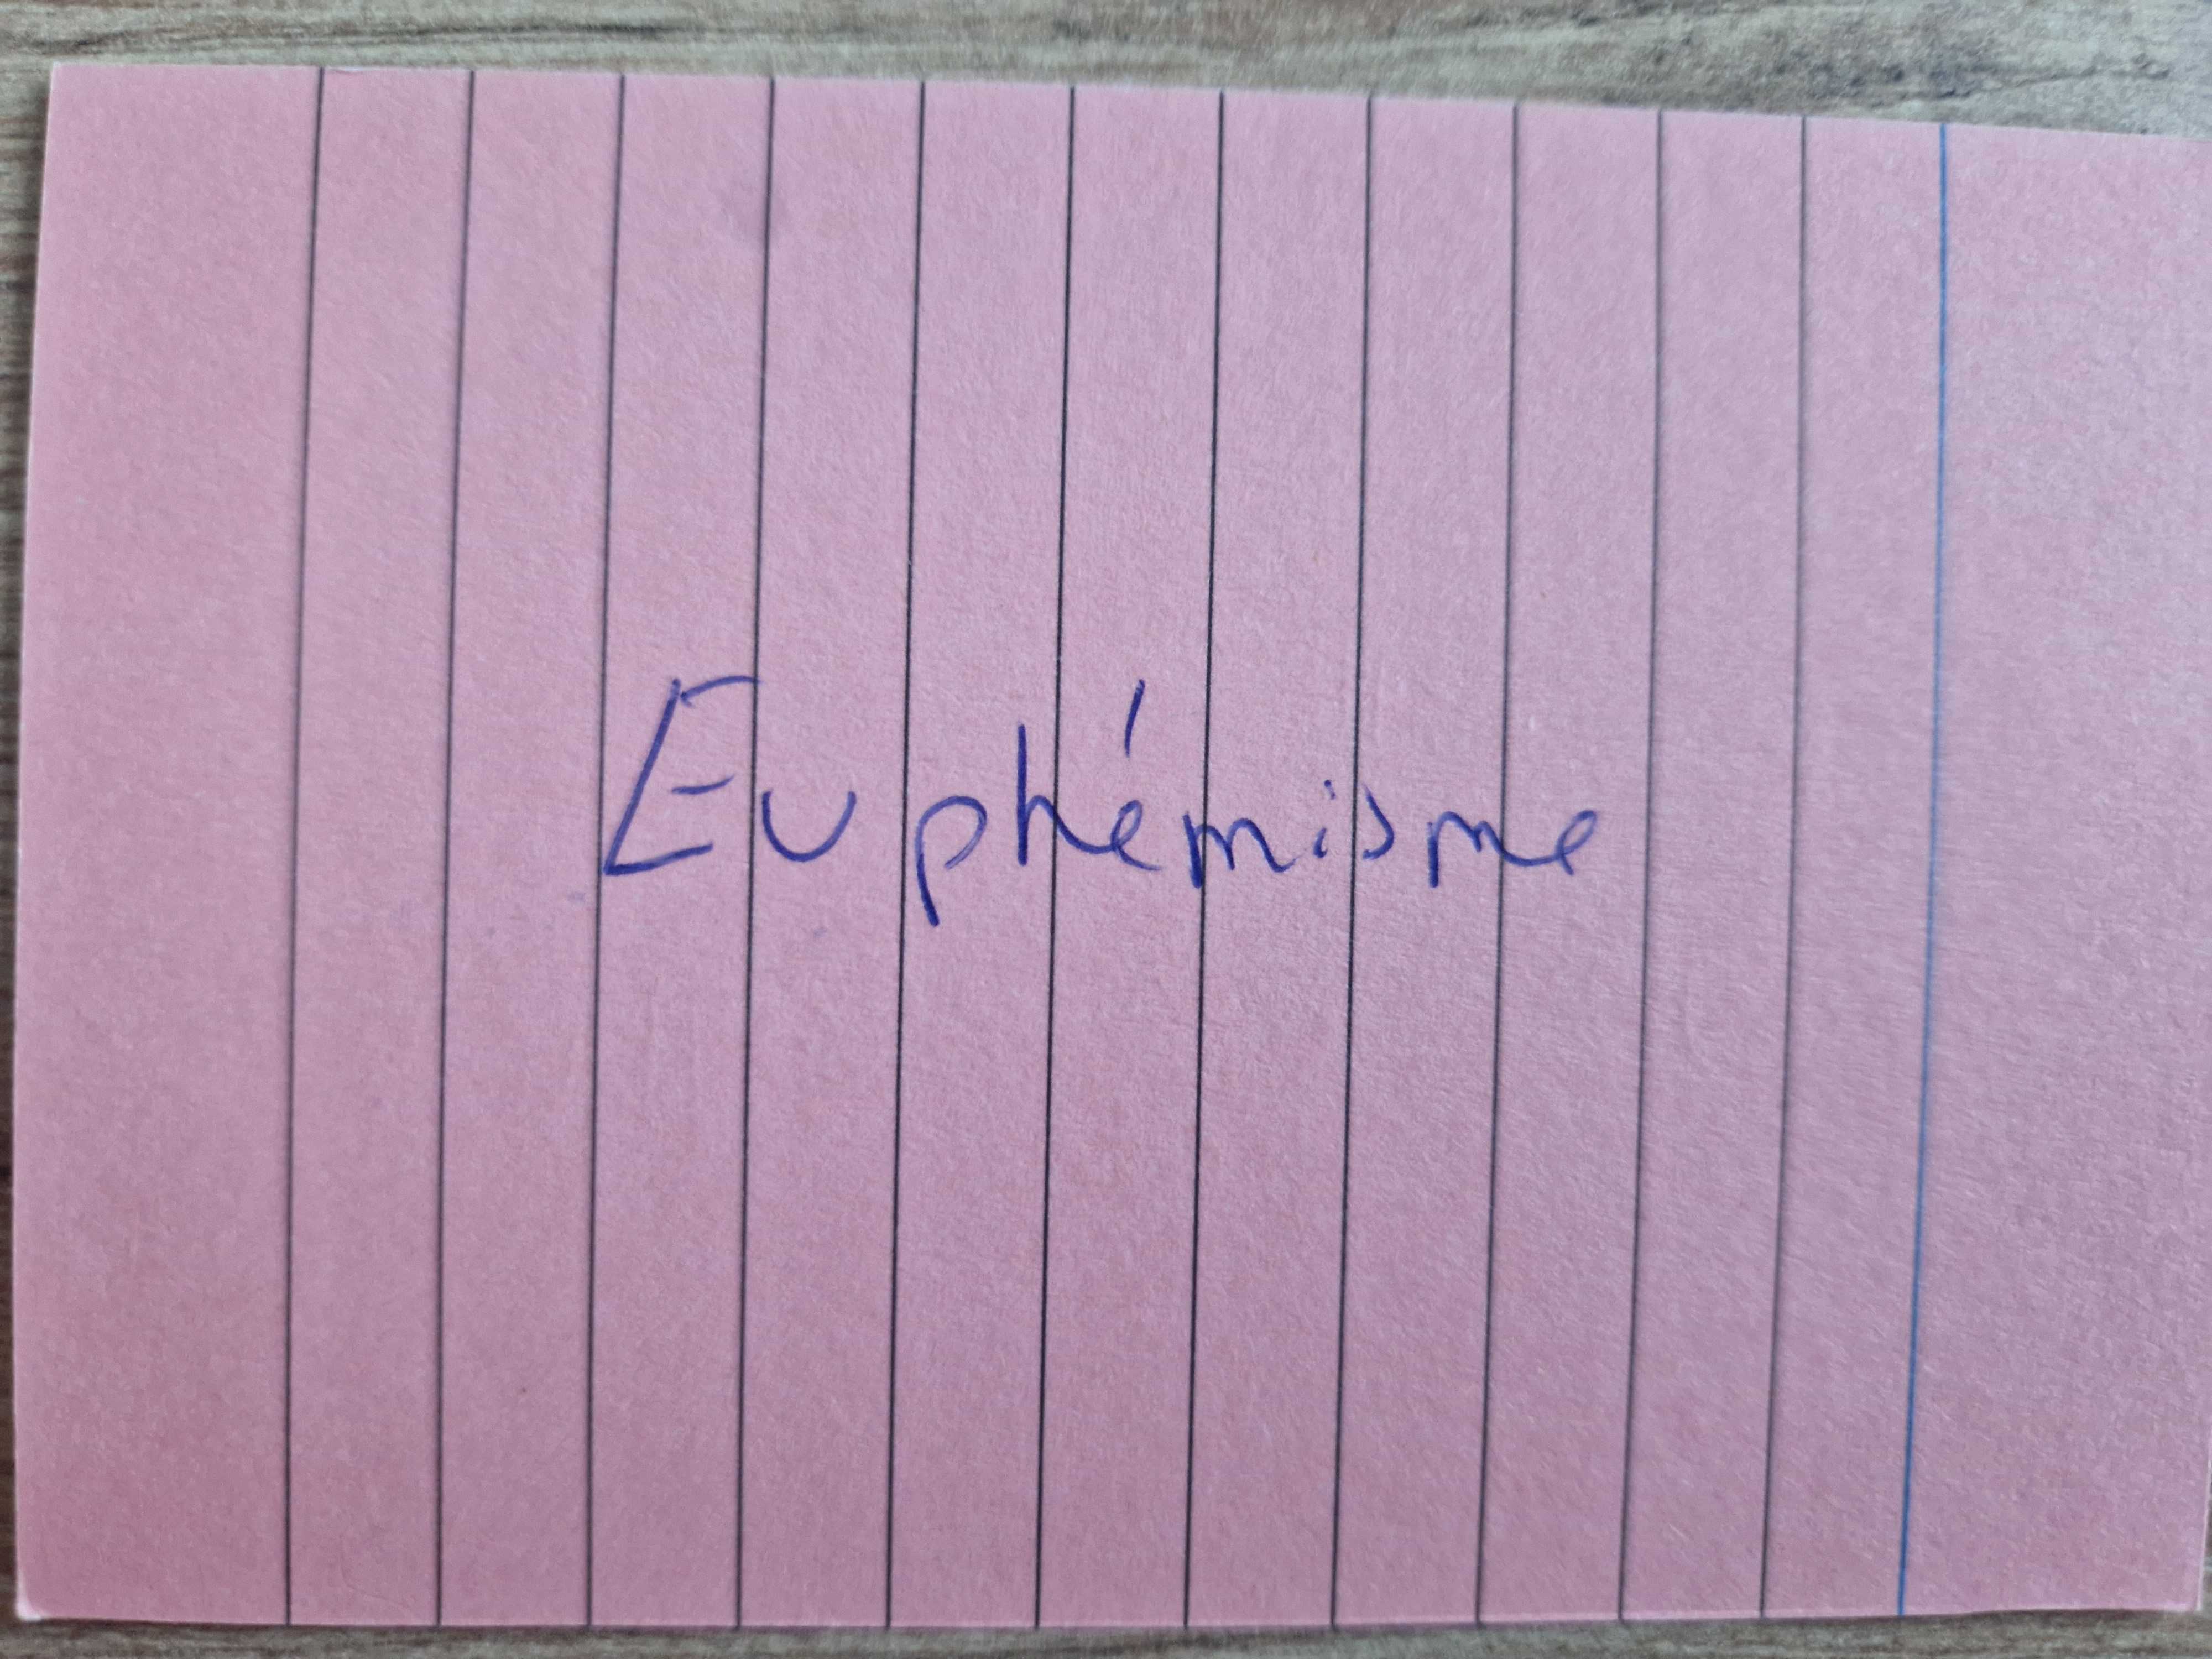 Euphémisme